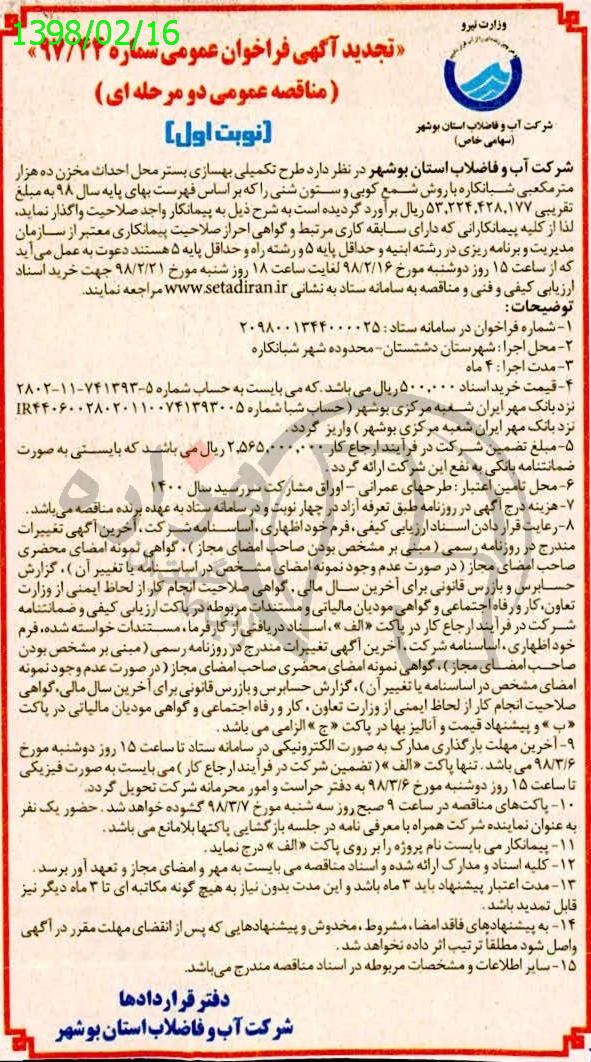 1398/02/16
وزارت نیرو
شرکت آب و فاضلاب استان بوشهر
(سهامی خاص)
«تجدید آگهی فراخوان عمومی شماره ۹۷/۲۴»
(مناقصه عمومی دو مرحله ای)
(نوبت اول)
شرکت آب و فاضلاب استان بوشهر در نظر دارد طرح تکمیلی بهسازی بستر محل احداث مخزن ده هزار
مترمکعبی شبانکاره با روش شمع کوبی و ستون شنی را که بر اساس فهرست بهای پایه سال ۹۸ به مبلغ
تقریبی ۵۳,۲۲۴,۴۲۸,۱۷۷ ریال برآورد گردیده است به شرح ذیل به پیمانکار واجد صلاحیت واگذار نماید،
لذا از کلیه پیمانکارانی که دارای سابقه کاری مرتبط و گواهی احراز صلاحیت پیمانکاری معتبر از سازمان
مدیریت و برنامه ریزی در رشته ابنیه و حداقل پایه ۵ و رشته راه و حداقل پایه ۵ هستند دعوت به عمل می آید
که از ساعت ۱۵ روز دوشنبه مورخ ۹۸/۲/۱۶ لغایت ساعت ۱۸ روز شنبه مورخ ۹۸/۲/۲۱ جهت خرید اسناد
ارزیابی کیفی و فنی و مناقصه به سامانه ستاد به نشانی www.setadiran.ir مراجعه نمایند.
توضیحات:
۱- شماره فراخوان در سامانه ستاد : ۲۰۹۸۰۰۱۳۴۴۰۰۰۰۲۵
۲- محل اجرا : شهرستان دشتستان- محدوده شهر شبانکاره
۳- مدت اجرا : ۴ ماه
۴- قیمت خرید اسناد ۵۰۰,۰۰۰ ریال می باشد .که می بایست به حساب شماره ۵-۷۴۱۳۹۳-۱۱-۲۸۰۲
نزد بانک مهر ایران شعبه مرکزی بوشهر (حساب شبا شماره IR۴۴۰۶۰۰۲۸۰۲۰۱۱۰۰۷۴۱۳۹۳۰۰۵
نزد بانک مهر ایران شعبه مرکزی بوشهر ) واریز گردد .
۵- مبلغ تضمین شرکت در فرآیند ارجاع کار ۲,۵۶۵,۰۰۰,۰۰۰ ریال می باشد که بایستی به صورت
ضمانتنامه بانکی به نفع این شرکت ارائه گردد .
۶- محل تامین اعتبار : طرحهای عمرانی - اوراق مشارکت سررسید سال ۱۴۰۰
۷- هزینه درج آگهی در روزنامه طبق تعرفه آزاد در چهار نوبت و در سامانه ستاد به عهده برنده مناقصه می باشد .
۸- رعایت قرار دادن اسناد ارزیابی کیفی، فرم خود اظهاری ، اساسنامه شرکت ، آخرین آگهی تغییرات
مندرج در روزنامه رسمی ( مبنی بر مشخص بودن صاحب امضای مجاز ) ، گواهی نمونه امضای محضری
صاحب امضای مجاز ( در صورت عدم وجود نمونه امضای مشخص در اساسنامه یا تغییر آن ) ، گزارش
حسابرس و بازرس قانونی برای آخرین سال مالی ، گواهی صلاحیت انجام کار از لحاظ ایمنی از وزارت
تعاون، کار و رفاه اجتماعی و گواهی مودیان مالیاتی و مستندات مربوطه در پاکت ارزیابی کیفی و ضمانتنامه
شرکت در فرآیند ارجاع کار در پاکت «الف» ، اسناد دریافتی از کارفرما ، مستندات خواسته شده، فرم
خود اظهاری ، اساسنامه شرکت ، آخرین آگهی تغییرات مندرج در روزنامه رسمی ( مبنی بر مشخص بودن
صاحب امضای مجاز ) ، گواهی نمونه امضای محضری صاحب امضای مجاز ( در صورت عدم وجود نمونه
امضای مشخص در اساسنامه یا تغییر آن ) ، گزارش حسابرس و بازرس قانونی برای آخرین سال مالی، گواهی
صلاحیت انجام کار از لحاظ ایمنی از وزارت تعاون ، کار و رفاه اجتماعی و گواهی مودیان مالیاتی در پاکت
«ب» و پیشنهاد قیمت و آنالیز بها در پاکت «ج» الزامی می باشد .
۹- آخرین مهلت بارگذاری مدارک به صورت الکترونیکی در سامانه ستاد تا ساعت ۱۵ روز دوشنبه مورخ
۹۸/۳/۶ می باشد . تنها پاکت «الف» ( تضمین شرکت در فرآیند ارجاع کار ) می بایست به صورت فیزیکی
تا ساعت ۱۵ روز دوشنبه مورخ ۹۸/۳/۶ به دفتر حراست و امور محرمانه شرکت تحویل گردد.
۱۰- پاکت‌های مناقصه در ساعت ۹ صبح روز سه شنبه مورخ ۹۸/۳/۷ گشوده خواهد شد . حضور یک نفر
به عنوان نماینده شرکت همراه با معرفی نامه در جلسه بازگشایی پاکتها بلامانع می باشد .
۱۱- پیمانکار می بایست نام پروژه را بر روی پاکت «الف» درج نماید .
۱۲- کلیه اسناد و مدارک ارائه شده و اسناد مناقصه می بایست به مهر و امضای مجاز و تعهد آور برسد .
۱۳- مدت اعتبار پیشنهاد باید ۳ ماه باشد و این مدت بدون نیاز به هیچ گونه مکاتبه ای تا ۳ ماه دیگر نیز
قابل تمدید باشد .
۱۴- به پیشنهادهای فاقد امضا ، مشروط ، مخدوش و پیشنهادهایی که پس از انقضای مهلت مقرر در آگهی
واصل شود مطلقا ترتیب اثر داده نخواهد شد .
۱۵- سایر اطلاعات و مشخصات مربوطه در اسناد مناقصه مندرج می‌باشد.
دفتر قراردادها
شرکت آب و فاضلاب استان بوشهر